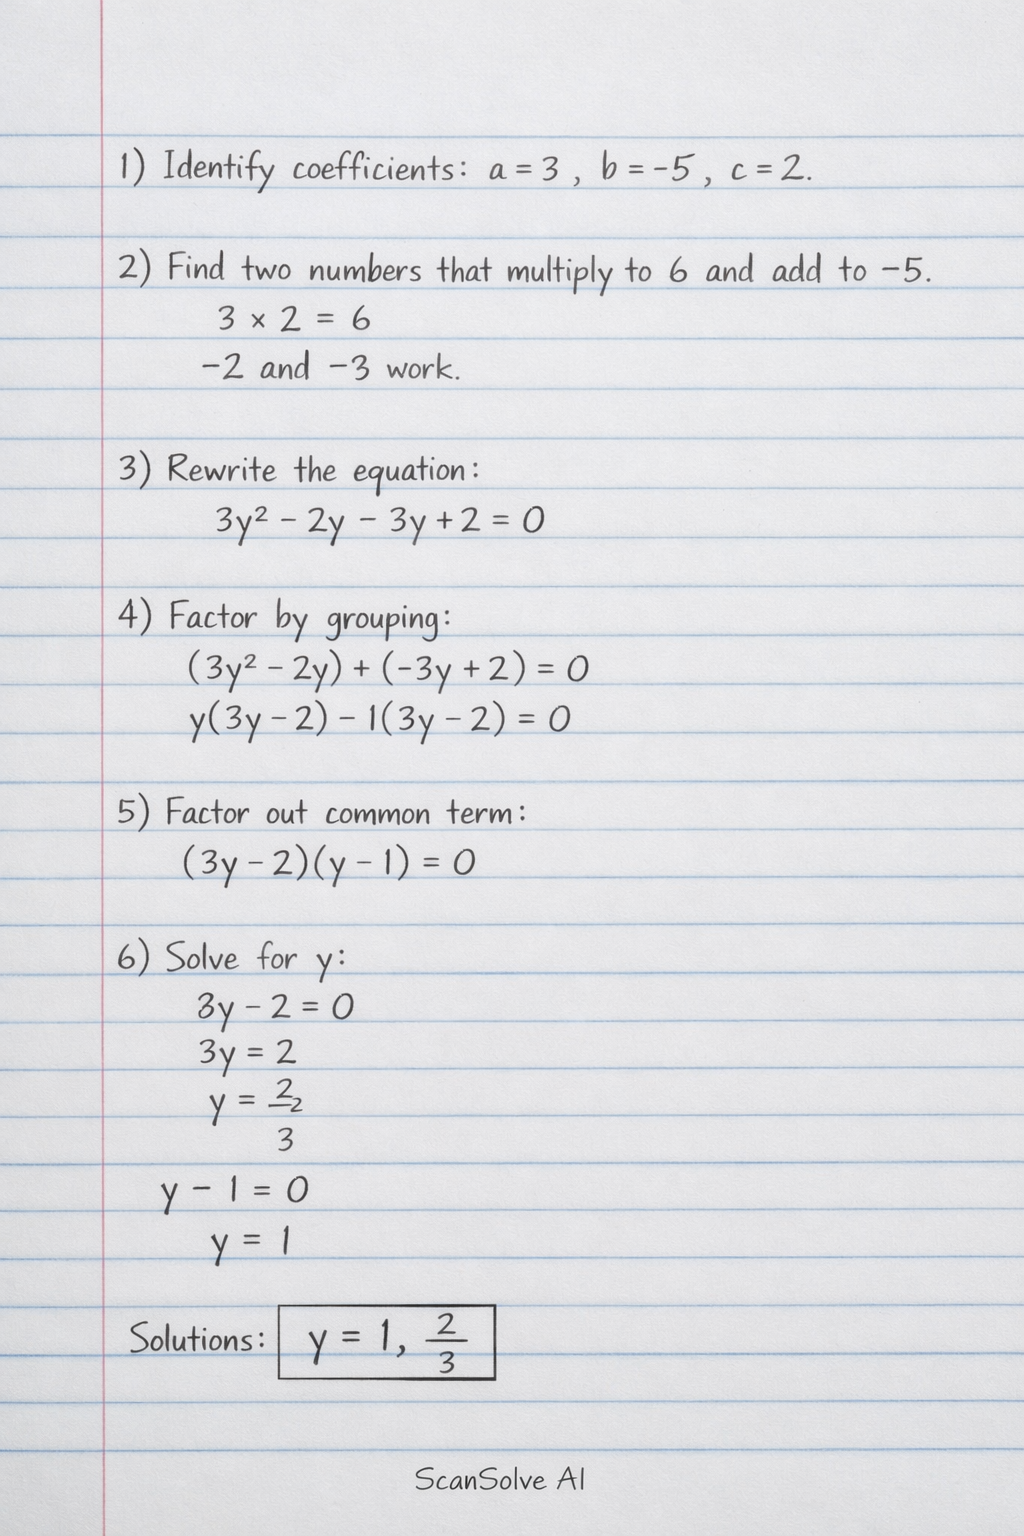 1) Identify coefficients: a = 3 , b = -5 , c = 2.
2) Find two numbers that multiply to 6 and add to -5.
3 × 2 = 6
-2 and -3 work.
3) Rewrite the equation:
3y² - 2y - 3y + 2 = 0
4) Factor by grouping:
(3y² - 2y) + (-3y + 2) = 0
y(3y - 2) - 1(3y - 2) = 0
5) Factor out common term:
(3y - 2)(y - 1) = 0
6) Solve for y:
3y - 2 = 0
3y = 2
y = 2 2
3
y - 1 = 0
y = 1
Solutions: y = 1, 2/3
ScanSolve AI